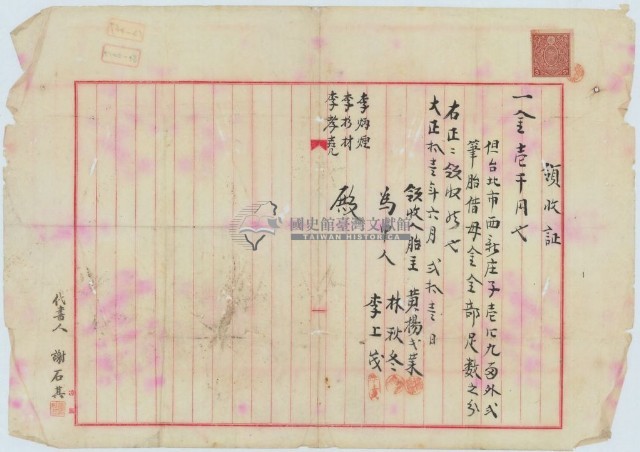 領收証
一金壱千円也
但台北市西新庄子壱七九番外弍
筆胎借母金全部足数之分
右正ニ領収候也
大正拾壱年六月弍拾壱日
領收人胎主 黄揚
為 人 林秋冬
李上茂
殿
李炳煌
李杉材
李孝堯
代書人 謝石其
國史館臺灣文獻館
TAIWAN HISTORICA